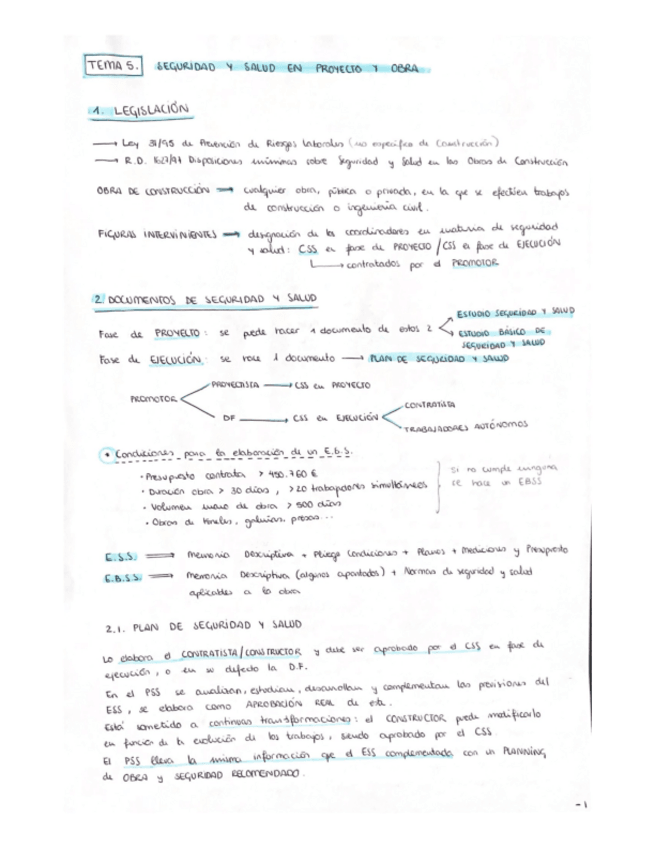 TEMA 5. SEGURIDAD Y SALUD EN PROYECTO Y OBRA
1. LEGISLACIÓN
→ Ley 31/95 de Prevención de Riesgos Laborales (no específica de Construcción)
→ R.D. 1627/97 Disposiciones mínimas sobre Seguridad y Salud en las Obras de Construcción
OBRA DE CONSTRUCCIÓN → cualquier obra, pública o privada, en la que se efectúen trabajos
de construcción o ingeniería civil.
FIGURAS INTERVINIENTES → designación de los coordinadores en materia de seguridad
y salud: CSS en fase de PROYECTO / CSS en fase de EJECUCIÓN
→ contratados por el PROMOTOR
2. DOCUMENTOS DE SEGURIDAD Y SALUD
Fase de PROYECTO: se puede hacer 1 documento de estos 2
ESTUDIO SEGURIDAD Y SALUD
ESTUDIO BÁSICO DE
SEGURIDAD Y SALUD
Fase de EJECUCIÓN: se hace 1 documento → PLAN DE SEGURIDAD Y SALUD
PROMOTOR
PROYECTISTA → CSS en PROYECTO
DF → CSS en EJECUCIÓN
CONTRATISTA
TRABAJADORES AUTÓNOMOS
• Condiciones para la elaboración de un E.b.S.
· Presupuesto contrata > 450.760 €
· Duración obra > 30 días, > 20 trabajadores simultáneos
· Volumen mano de obra > 500 días
· Obras de túneles, galerías, presas...
Si no cumple ninguna
se hace un EBSS
E.S.S. ⟹ Memoria Descriptiva + Pliego Condiciones + Planos + Mediciones y Presupuesto
E.B.S.S. ⟹ Memoria Descriptiva (algunos apartados) + Normas de seguridad y salud
aplicables a la obra
2.1. PLAN DE SEGURIDAD Y SALUD
Lo elabora el CONTRATISTA/CONSTRUCTOR y debe ser aprobado por el CSS en fase de
ejecución, o en su defecto la D.F.
En el PSS se analizan, estudian, desarrollan y complementan las previsiones del
ESS, se elabora como APROBACIÓN REAL de este.
Está sometido a continuas transformaciones: el CONSTRUCTOR puede modificarlo
en función de la evolución de los trabajos, siendo aprobado por el CSS.
El PSS lleva la misma información que el ESS complementada con un PLANNING
de OBRA y SEGURIDAD RECOMENDADO.
-1